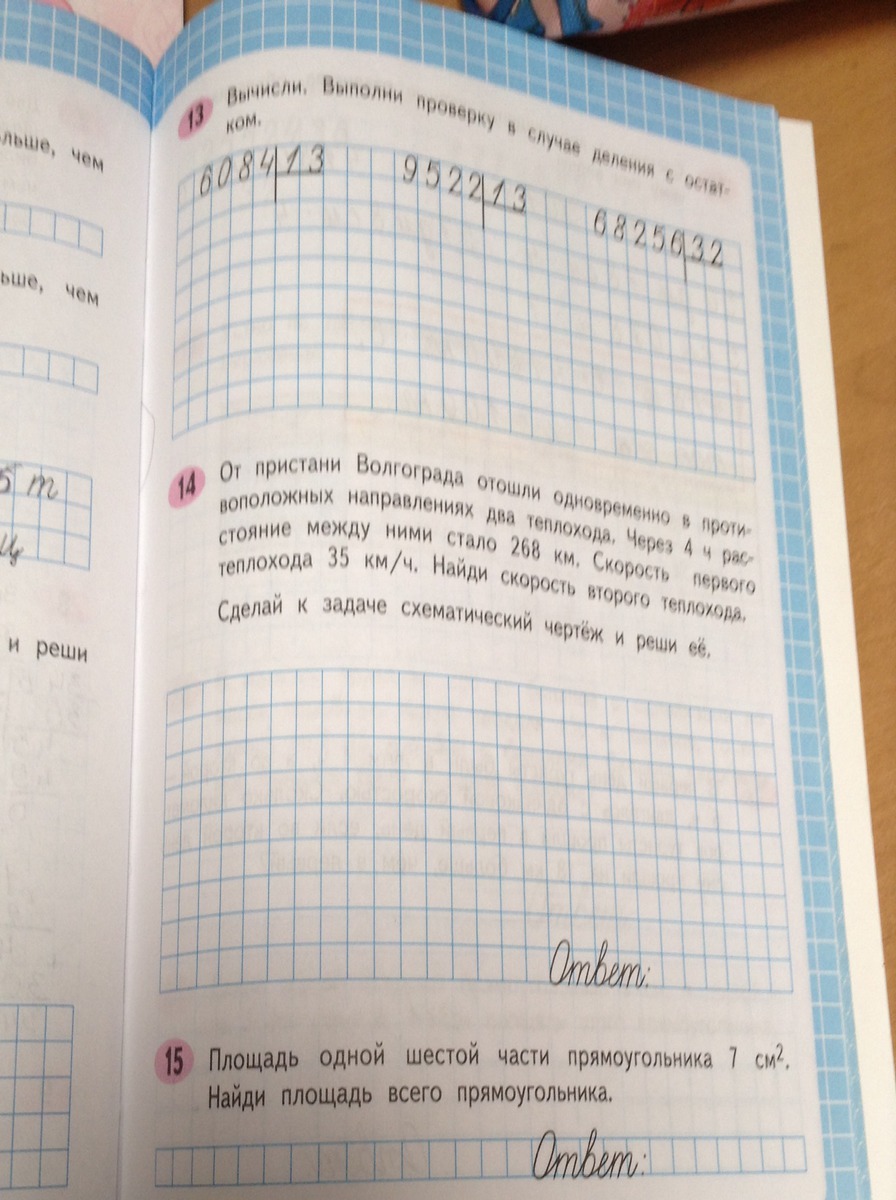 льше, чем
ьше, чем
5 т
ц
и реши
13 Вычисли. Выполни проверку в случае деления с остат-
ком.
6084 13 9522 13 68256 32
14 От пристани Волгограда отошли одновременно в проти-
воположных направлениях два теплохода. Через 4 ч рас-
стояние между ними стало 268 км. Скорость первого
теплохода 35 км/ч. Найди скорость второго теплохода.
Сделай к задаче схематический чертёж и реши её.
Ответ:
15 Площадь одной шестой части прямоугольника 7 см².
Найди площадь всего прямоугольника.
Ответ: